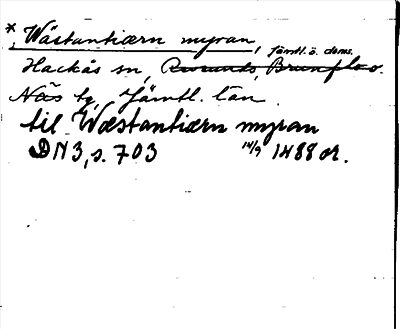 * Wästantiærn myran, Jämtl. ö. doms.
Hackås sn, Revsunds, Brunflo o.
Näs tg, Jämtl. län
til Wæstantiærn myran
DN 3, s. 703 14/9 1488 or.